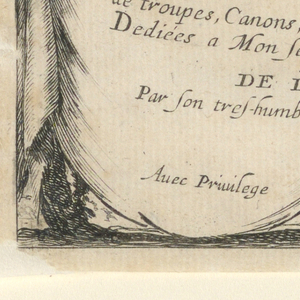 de troupes, Canons,
Dediées a Mon se
DE L
Par son tres-humb
Avec Privilege